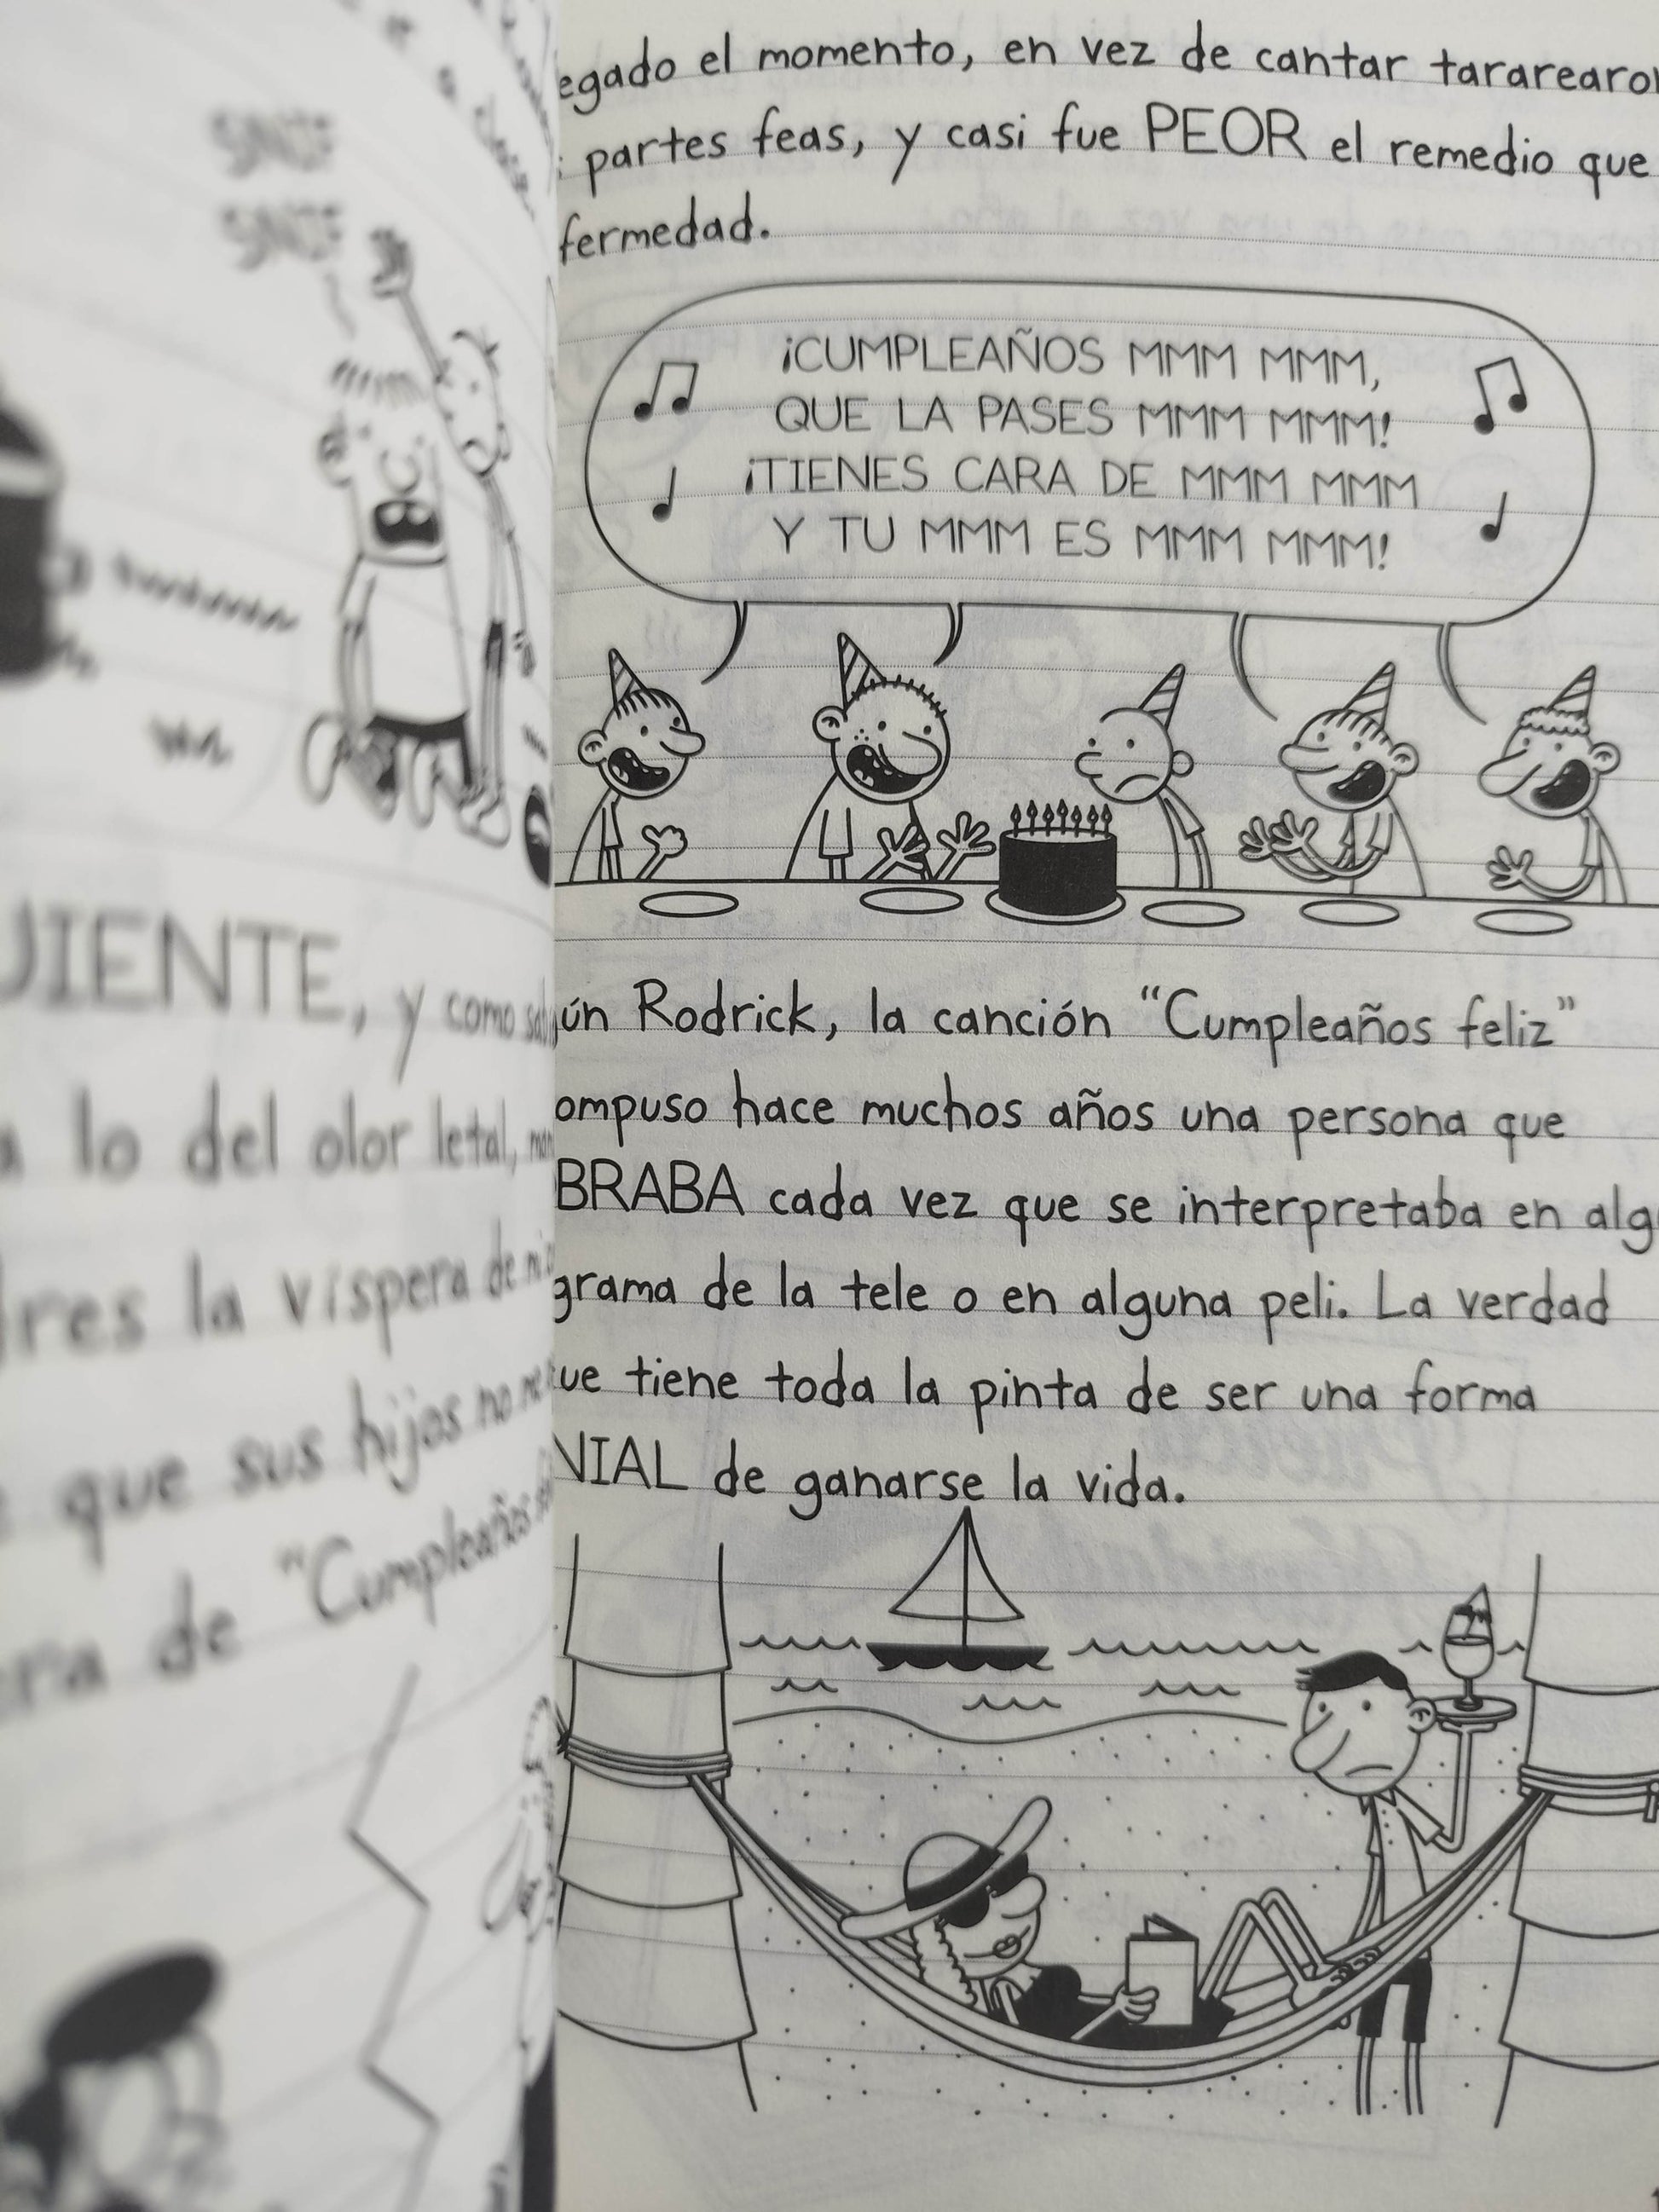 SNIF
SNIF
UIENTE, y como
lo del olor letal,
la víspera de
que sus hijos no
de "Cumpleaños
egado el momento, en vez de cantar tararearon
partes feas, y casi fue PEOR el remedio que
fermedad.
¡CUMPLEAÑOS MMM MMM,
QUE LA PASES MMM MMM!
¡TIENES CARA DE MMM MMM
Y TU MMM ES MMM MMM!
ún Rodrick, la canción "Cumpleaños feliz"
ompuso hace muchos años una persona que
BRABA cada vez que se interpretaba en alg
grama de la tele o en alguna peli. La verdad
ue tiene toda la pinta de ser una forma
NIAL de ganarse la vida.